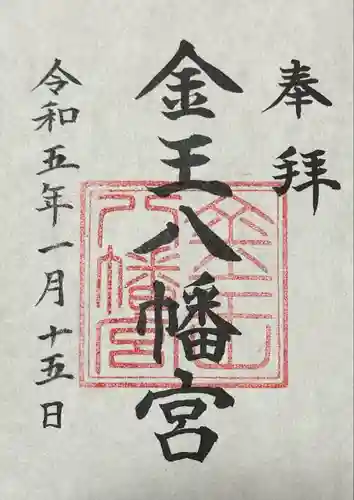 奉拝
金王八幡宮
令和五年一月十五日
金王八幡宮